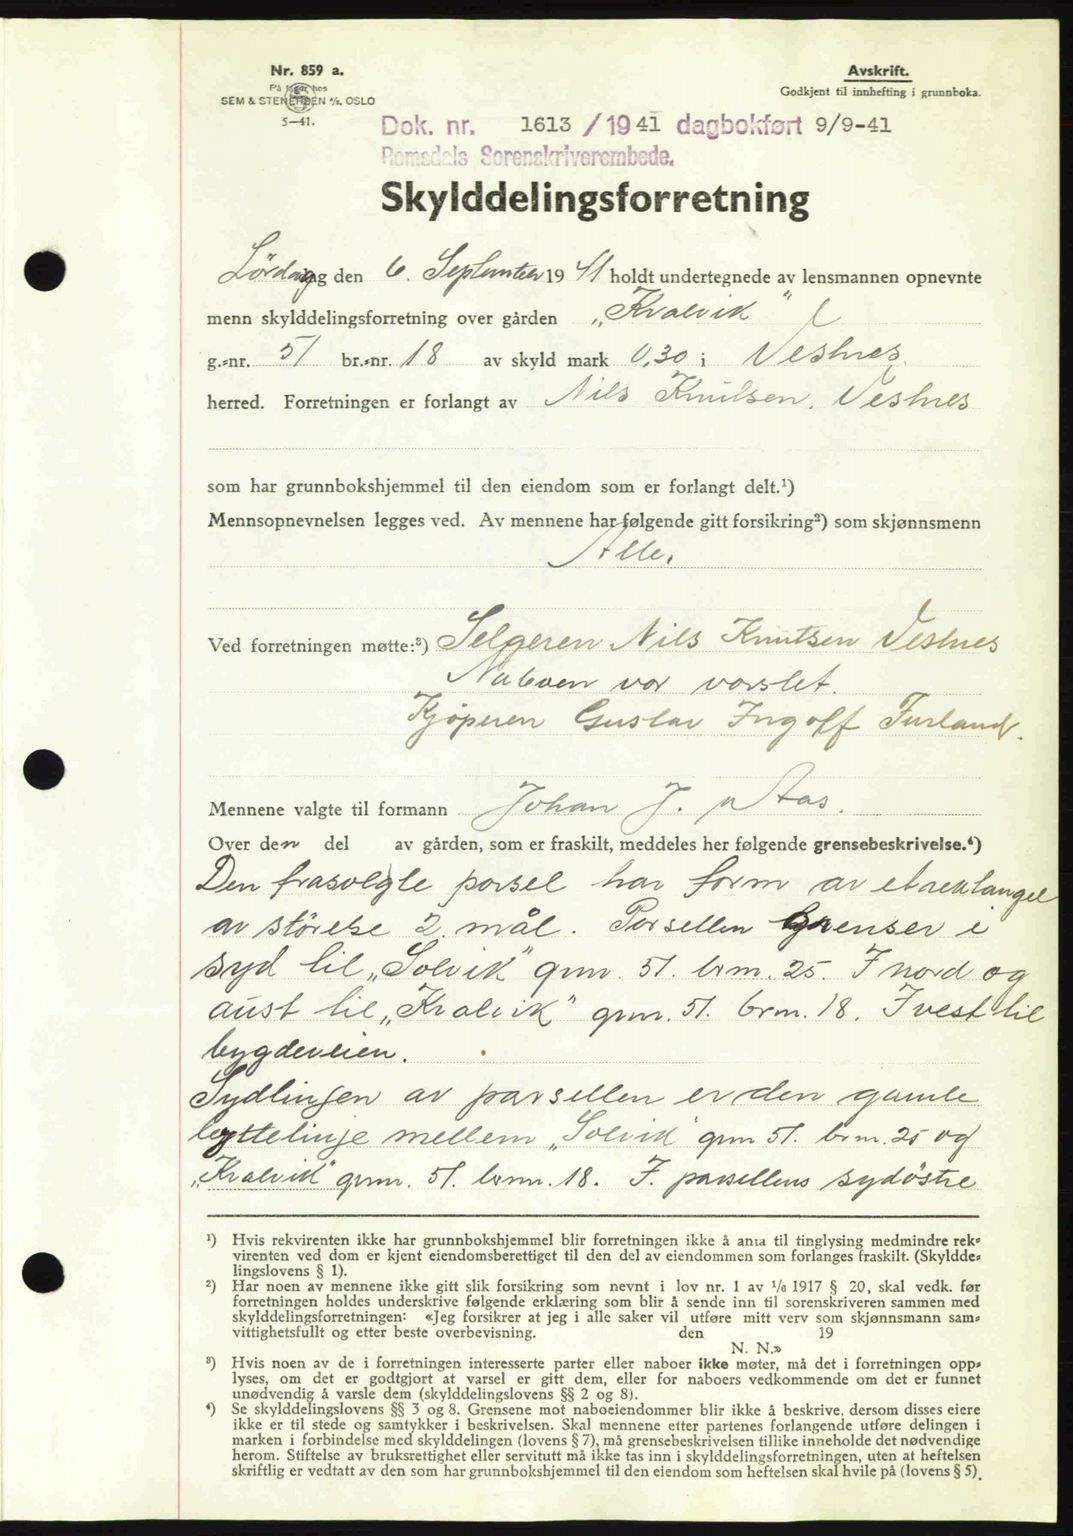 Nr. 859 a.
På lager hos
SEM & STENERSEN A/S. OSLO
5—41.
Avskrift.
Godkjent til innhefting i grunnboka.
Dok. nr. 1613 / 1941 dagbokført 9/9-41
Romsdals Sorenskriverembede.
Skylddelingsforretning
Lördag den 6. September 1941 holdt undertegnede av lensmannen opnevnte
menn skylddelingsforretning over gården „Kvalvik"
g.-nr. 51 br.-nr. 18 av skyld mark 0,30 i Vestnes
herred. Forretningen er forlangt av Nils Knutsen, Vestnes
som har grunnbokshjemmel til den eiendom som er forlangt delt.¹)
Mennsopnevnelsen legges ved. Av mennene har følgende gitt forsikring²) som skjønnsmenn
Alle.
Ved forretningen møtte:³) Selgeren Nils Knutsen Vestnes
Naboen var varslet.
Kjöperen Gustav Ingolf Furland.
Mennene valgte til formann Johan J. Aas.
Over den del av gården, som er fraskilt, meddeles her følgende grensebeskrivelse.⁴)
Den frasolgte parsel har form av et rektangel
av störelse 2. mål. Parsellen grenser i
syd til „Solvik" gnr. 51. brn. 25. I nord og
aust til „Kvalvik" gnr. 51. brn. 18. I vest til
bygdeveien.
Sydlinjen av parsellen er den gamle
byttelinje mellem „Solvik" gnr 51. brn. 25 og
„Kvalvik" gnr. 51. brn. 18. I. parsellens sydöstre
¹) Hvis rekvirenten ikke har grunnbokshjemmel blir forretningen ikke å anta til tinglysing medmindre rek-
virenten ved dom er kjent eiendomsberettiget til den del av eiendommen som forlanges fraskilt. (Skyldde-
lingslovens § 1).
²) Har noen av mennene ikke gitt slik forsikring som nevnt i lov nr. 1 av 1/6 1917 § 20, skal vedk. før
forretningen holdes underskrive følgende erklæring som blir å sende inn til sorenskriveren sammen med
skylddelingsforretningen: «Jeg forsikrer at jeg i alle saker vil utføre mitt verv som skjønnsmann sam-
vittighetsfullt og etter beste overbevisning. den 19
N. N.»
³) Hvis noen av de i forretningen interesserte parter eller naboer ikke møter, må det i forretningen opp-
lyses, om det er godtgjort at varsel er gitt dem, eller for naboers vedkommende om det er funnet
unødvendig å varsle dem (skylddelingslovens §§ 2 og 8).
⁴) Se skylddelingslovens §§ 3 og 8. Grensene mot naboeiendommer blir ikke å beskrive, dersom disses eiere
ikke er til stede og samtykker i beskrivelsen. Skal mennene etter partenes forlangende utføre delingen i
marken i forbindelse med skylddelingen (lovens § 7), må grensebeskrivelsen tillike inneholde det nødvendige
herom. Stiftelse av bruksrettighet eller servitutt må ikke tas inn i skylddelingsforretningen, uten at heftelsen
skriftlig er vedtatt av den som har grunnbokshjemmel til den eiendom som heftelsen skal hvile på (lovens § 5).